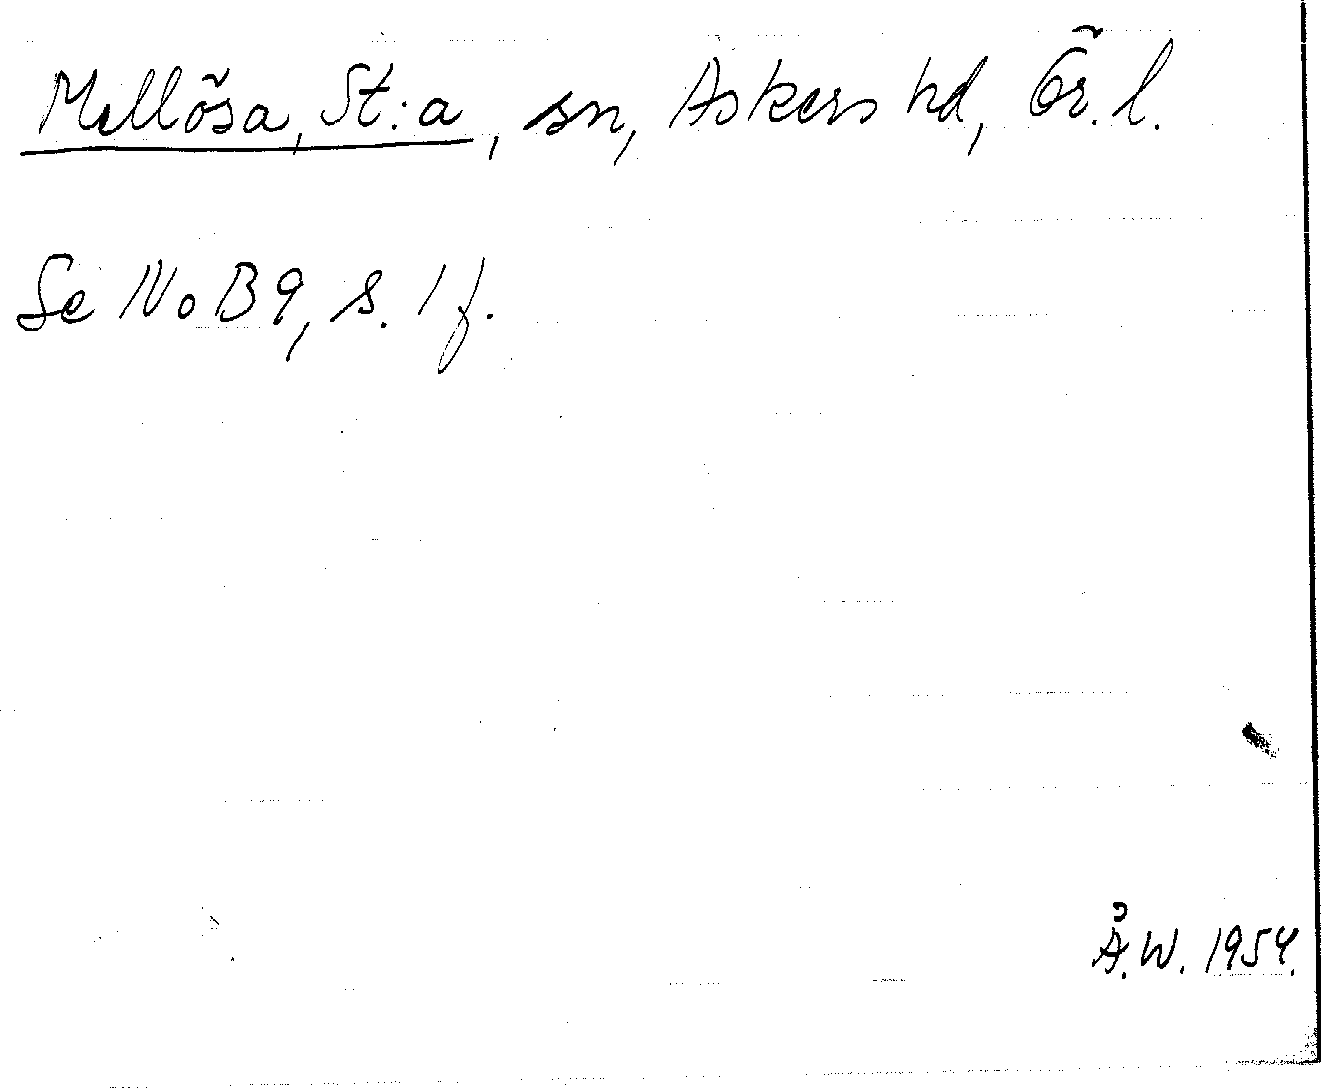 Mellösa, St:a, sn, Askers hd, Ör. l.
Se NoB 9, s. 1 f.
Å.W. 1954.